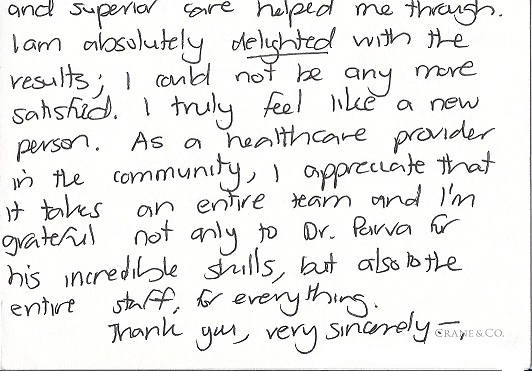 and superior care helped me through.
I am absolutely delighted with the
results; I could not be any more
satisfied. I truly feel like a new
person. As a healthcare provider
in the community, I appreciate that
it takes an entire team and I'm
grateful not only to Dr. Parva for
his incredible skills, but also to the
entire staff, for everything.
Thank you, very sincerely —,
CRANE & CO.